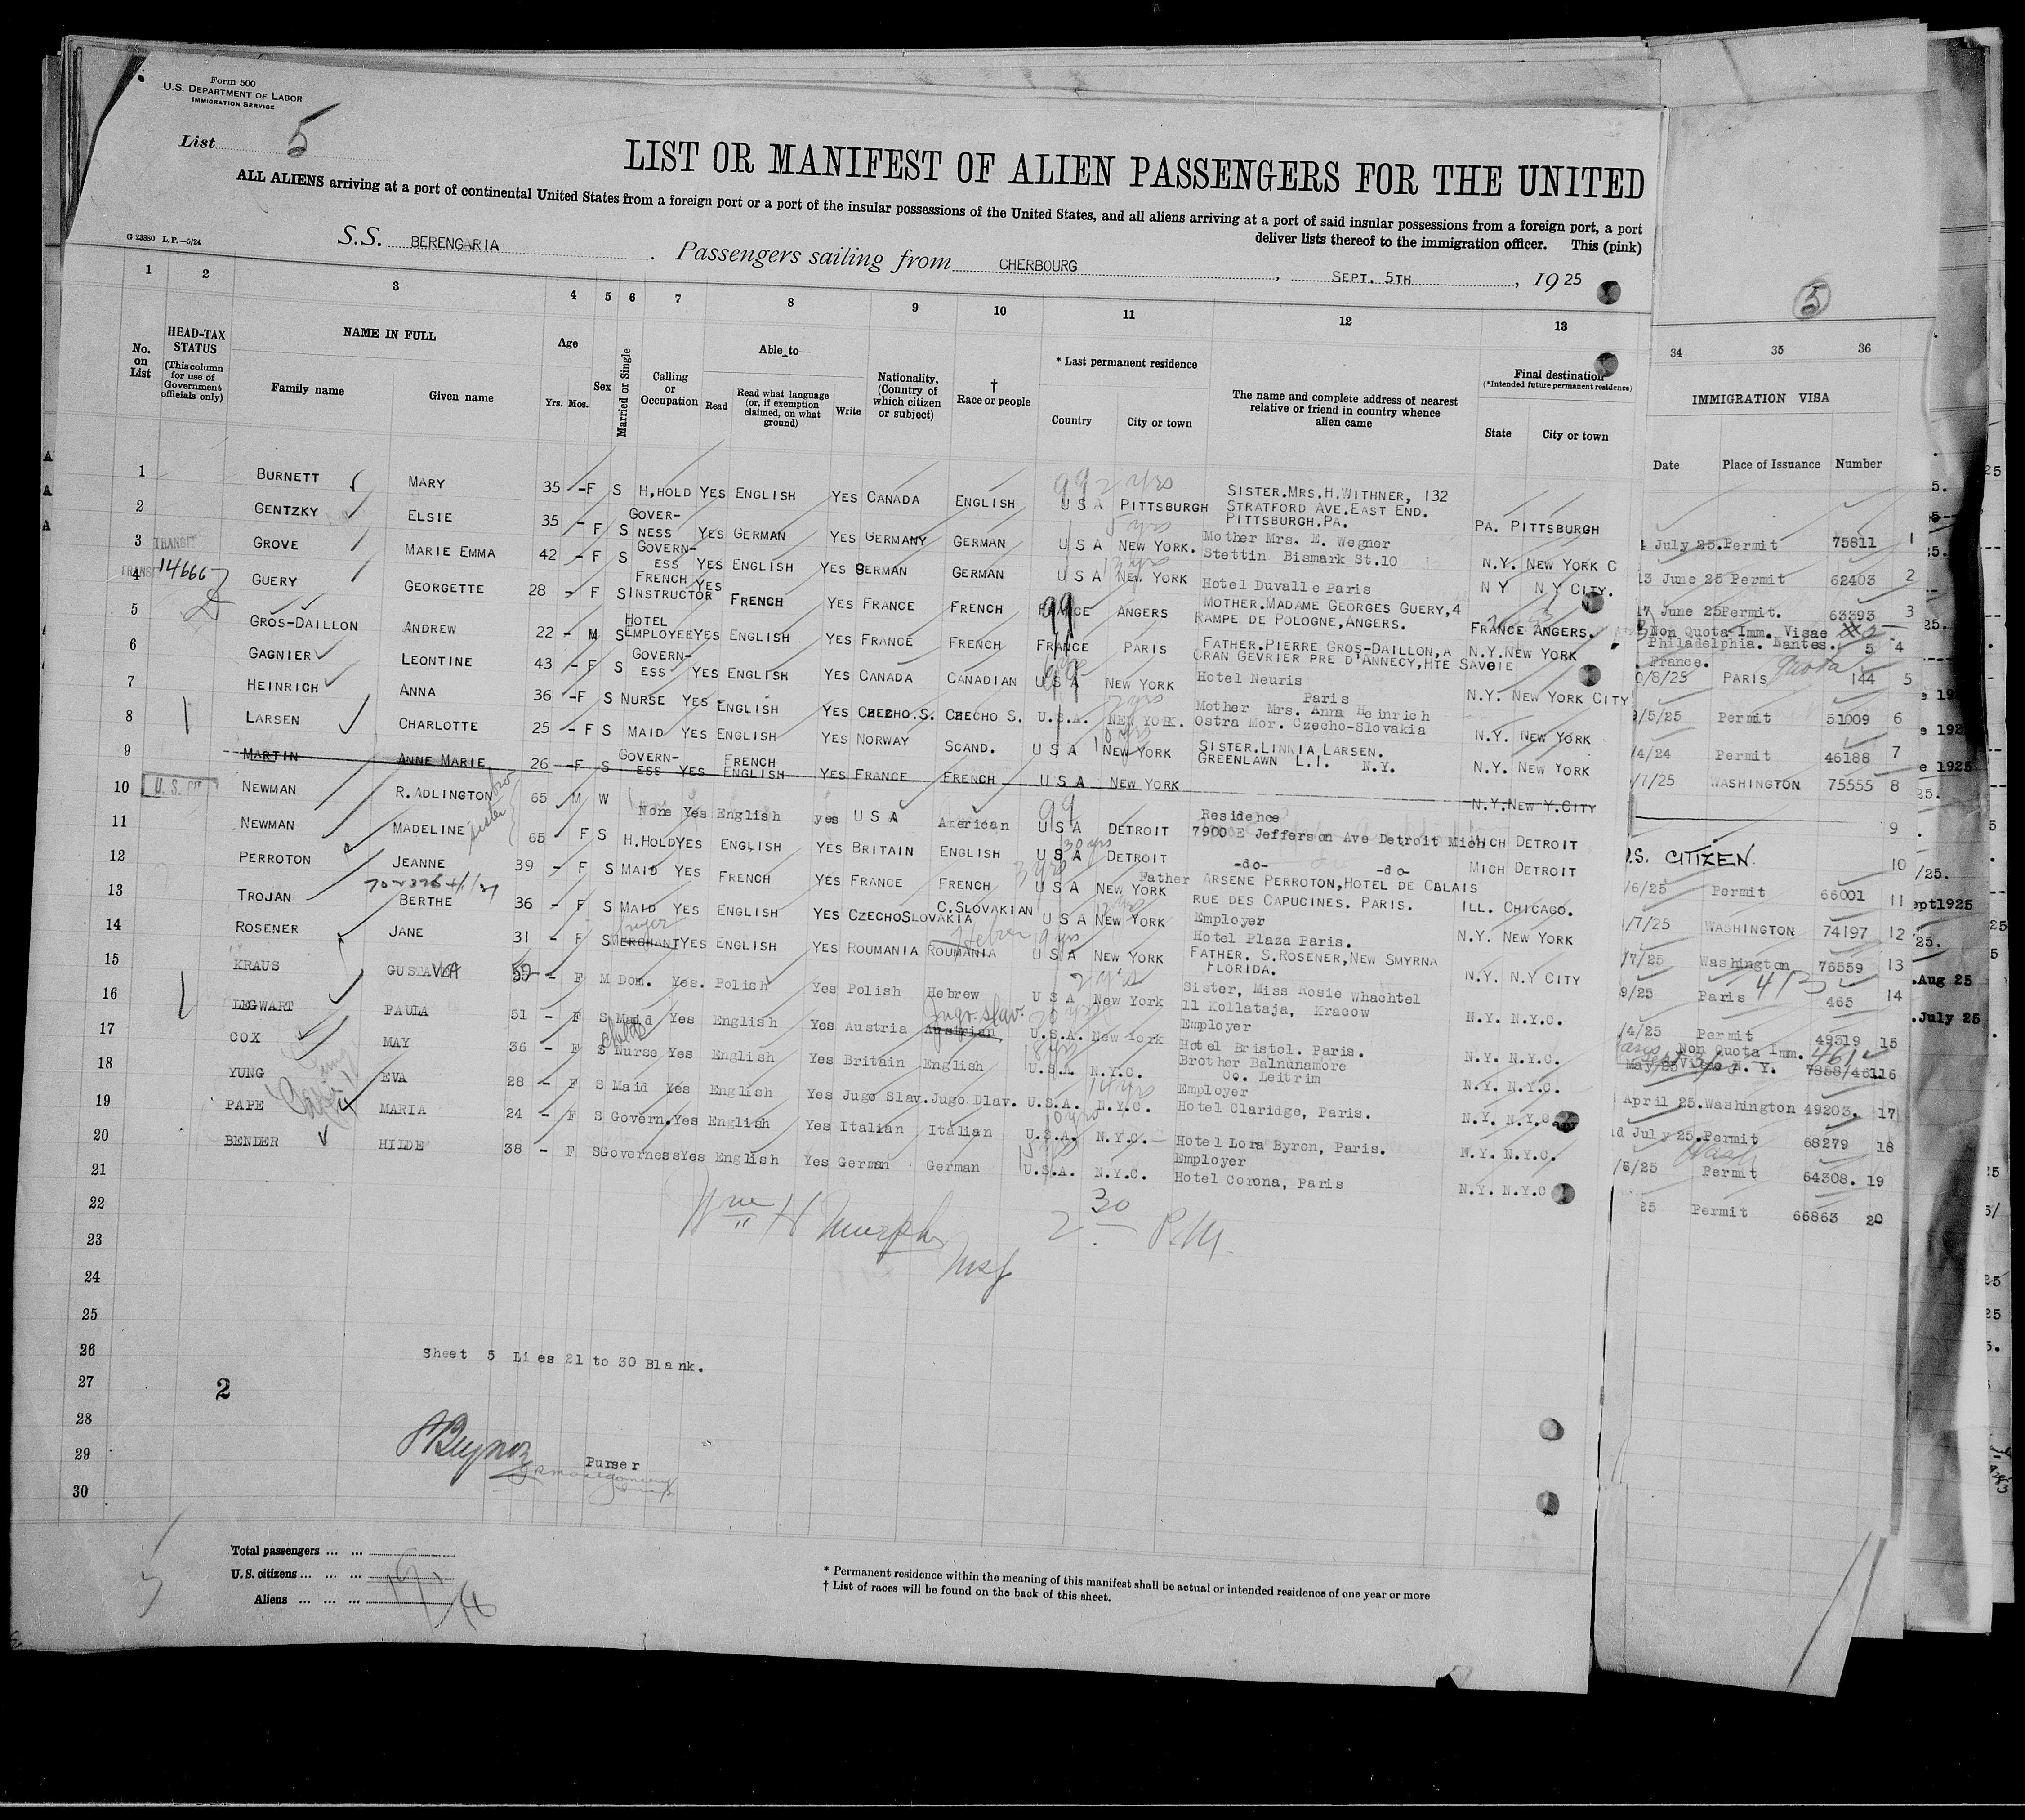 Form 500
U.S. DEPARTMENT OF LABOR
IMMIGRATION SERVICE
List 5
LIST OR MANIFEST OF ALIEN PASSENGERS FOR THE UNITED
ALL ALIENS arriving at a port of continental United States from a foreign port or a port of the insular possessions of the United States, and all aliens arriving at a port of said insular possessions from a foreign port, a port
deliver lists thereof to the immigration officer. This (pink)
G 23880 L.P.—5/24
S.S. BERENGARIA. Passengers sailing from CHERBOURG, SEPT. 5TH, 1925
5
1 2 3 4 5 6 7 8 9 10 11 12 13 34 35 36
No. on List
HEAD-TAX STATUS
(This column for use of Government officials only)
NAME IN FULL
Family name Given name
Age
Yrs. Mos.
Sex
Married or Single
Calling or Occupation
Able to—
Read
Read what language (or, if exemption claimed, on what ground)
Write
Nationality, (Country of which citizen or subject)
† Race or people
* Last permanent residence
Country City or town
The name and complete address of nearest relative or friend in country whence alien came
Final destination
(*Intended future permanent residence)
State City or town
IMMIGRATION VISA
Date Place of Issuance Number
1 BURNETT MARY 35 - F S H.HOLD YES ENGLISH YES CANADA ENGLISH 99 2 yrs U S A PITTSBURGH SISTER.MRS.H.WITHNER, 132 STRATFORD AVE.EAST END. PITTSBURGH.PA. PA. PITTSBURGH July 25. Permit 75811 1
2 GENTZKY ELSIE 35 - F S GOVER-NESS YES GERMAN YES GERMANY GERMAN U S A NEW YORK. Mother Mrs. E. Wegner Stettin Bismark St.10 N.Y. NEW YORK C 13 June 25 Permit 62403 2
3 TRANSIT GROVE MARIE EMMA 42 - F S GOVERN-ESS YES ENGLISH YES GERMAN GERMAN U S A NEW YORK Hotel Duvalle Paris N Y N Y CITY. 17 June 25 Permit. 63393 3
4 TRANSIT 14666 GUERY GEORGETTE 28 - F S FRENCH INSTRUCTOR YES FRENCH YES FRANCE FRENCH FRANCE ANGERS MOTHER.MADAME GEORGES GUERY,4 RAMPE DE POLOGNE,ANGERS. FRANCE ANGERS. Non Quota Imm. Visae Philadelphia. Nantes. 5 4 France.
5 GROS-DAILLON ANDREW 22 - M S HOTEL EMPLOYEE YES ENGLISH YES FRANCE FRENCH 99 FRANCE PARIS FATHER.PIERRE GROS-DAILLON,A CRAN GEVRIER PRE D'ANNECY,HTE SAVOIE N.Y.NEW YORK 0/8/25 PARIS Quota 144 5
6 GAGNIER LEONTINE 43 - F S GOVERN-ESS YES ENGLISH YES CANADA CANADIAN U S A NEW YORK Hotel Neuris Paris N.Y. NEW YORK CITY /5/25 Permit 51009 6
7 HEINRICH ANNA 36 - F S NURSE YES ENGLISH YES CZECHO.S. CZECHO S. U.S.A. NEW YORK. Mother Mrs. Anna Heinrich Ostra Mor. Czecho-Slovakia N.Y. NEW YORK /4/24 Permit 46188 7
8 LARSEN CHARLOTTE 25 - F S MAID YES ENGLISH YES NORWAY SCAND. U S A NEW YORK SISTER.LINNIA LARSEN. GREENLAWN L.I. N.Y. N.Y. NEW YORK /1/25 WASHINGTON 75555 8
9 MARTIN ANNE MARIE 26 - F S GOVERN-ESS YES FRENCH ENGLISH YES FRANCE FRENCH U S A NEW YORK N.Y.NEW Y.CITY 9
10 U.S. CIT NEWMAN R.ADLINGTON bro 65 M W None Yes English yes U S A American 99 U S A DETROIT Residence 7900 E Jefferson Ave Detroit Mich MICH DETROIT U.S. CITIZEN 10
11 NEWMAN MADELINE sister 65 F S H.HOLD YES ENGLISH YES BRITAIN ENGLISH 30 yrs U S A DETROIT -do- -do- MICH DETROIT /6/25 Permit 66001 11
12 PERROTON JEANNE 39 - F S MAID YES FRENCH YES FRANCE FRENCH 3 yrs U S A NEW YORK Father ARSENE PERROTON,HOTEL DE CALAIS RUE DES CAPUCINES. PARIS. ILL. CHICAGO. /7/25 WASHINGTON 74197 12
13 TROJAN BERTHE 36 - F S MAID YES ENGLISH YES CZECHOSLOVAKIA C.SLOVAKIAN U S A NEW YORK Employer Hotel Plaza Paris. N.Y. NEW YORK /7/25 Washington 76559 13
14 ROSENER JANE 31 - F S MERCHANT buyer YES ENGLISH YES ROUMANIA ROUMANIA Hebrew U S A NEW YORK FATHER. S.ROSENER,NEW SMYRNA FLORIDA. N.Y. N.Y CITY 9/25 Paris 413 465 14
15 KRAUS GUSTAVA 59 - F M Dom. Yes. Polish Yes Polish Hebrew U S A New York Sister, Miss Rosie Whachtel 11 Kollataja, Kracow N.Y. N.Y.C. /4/25 Permit 49319 15
16 LEGWART PAULA 51 - F S Maid Yes English Yes Austria Austrian Jugo-Slav. U.S.A. New York Employer Hotel Bristol. Paris. N.Y. N.Y.C. Non Quota Imm. 461 16
17 COX MAY 36 - F S Nurse Yes English Yes Britain English U.S.A. N.Y.C. Brother Balnunamore Co. Leitrim N.Y. N.Y.C. April 25.Washington 49203. 17
18 YUNG EVA 28 - F S Maid Yes English Yes Jugo Slav. Jugo Dlav. U.S.A. N.Y.C. Employer Hotel Claridge, Paris. N.Y. N.Y.C. July 25.Permit 68279 18
19 PAPE MARIA 24 - F S Govern. Yes English Yes Italian Italian 10 yrs U.S.A. N.Y.C. Hotel Lora Byron, Paris. N.Y. N.Y.C. /5/25 Permit 64308. 19
20 BENDER HILDE 38 - F S Governess Yes English Yes German German U.S.A. N.Y.C. Employer Hotel Corona, Paris N.Y. N.Y.C 25 Permit 66863 20
21
22
Wm H Murphy 2 30 P.M.
23
24
25
26
Sheet 5 Li es 21 to 30 Blank.
27
2
28
29
Purser
30
Total passengers ... ...
U.S. citizens ... ... ...
Aliens ... ... ...
* Permanent residence within the meaning of this manifest shall be actual or intended residence of one year or more
† List of races will be found on the back of this sheet.